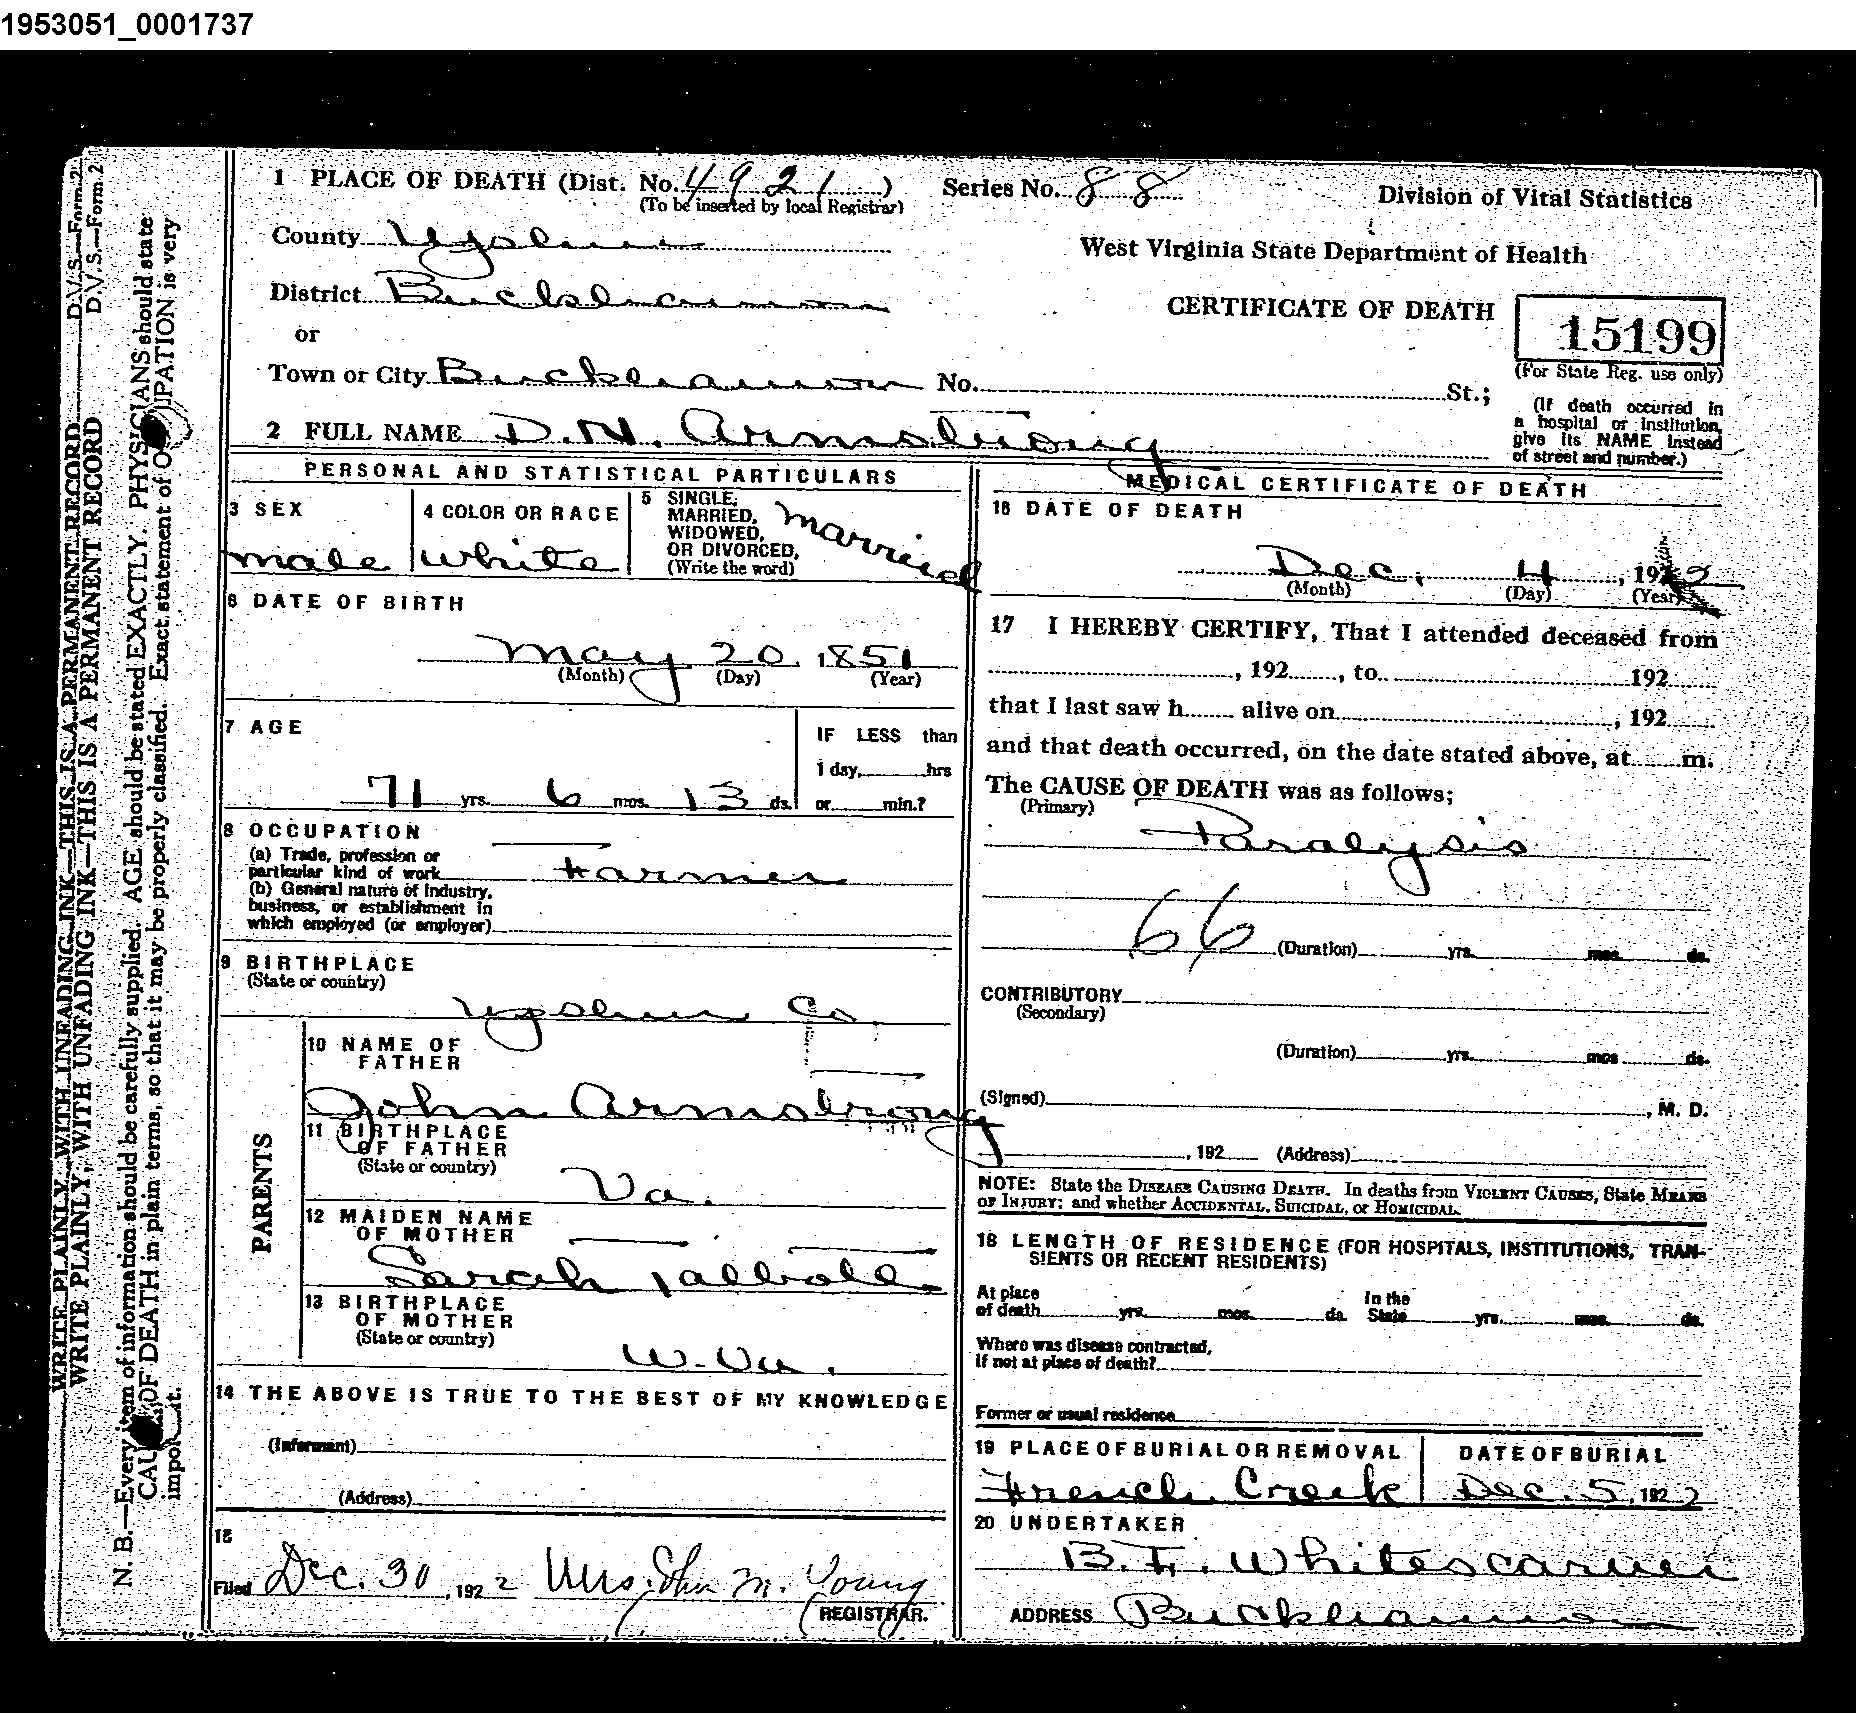 1953051_0001737
1 PLACE OF DEATH (Dist. No. 4921) Series No. 88 Division of Vital Statistics
(To be inserted by local Registrar)
County Upshur West Virginia State Department of Health
District Buckhannon CERTIFICATE OF DEATH 15199
or
(For State Reg. use only)
Town or City Buckhannon No. St.;
(If death occurred in a hospital or institution, give its NAME instead of street and number.)
2 FULL NAME D. N. Armstrong
PERSONAL AND STATISTICAL PARTICULARS
3 SEX
male
4 COLOR OR RACE
white
5 SINGLE,
MARRIED,
WIDOWED,
OR DIVORCED,
(Write the word)
married
6 DATE OF BIRTH
May 20, 1851
(Month) (Day) (Year)
7 AGE
71 yrs. 6 mos. 13 ds.
IF LESS than
1 day, hrs
or min.?
8 OCCUPATION
(a) Trade, profession or
particular kind of work Farmer
(b) General nature of industry,
business, or establishment in
which employed (or employer)
9 BIRTHPLACE
(State or country)
Upshur Co.
PARENTS
10 NAME OF
FATHER
John Armstrong
11 BIRTHPLACE
OF FATHER
(State or country)
Va.
12 MAIDEN NAME
OF MOTHER
Sarah Talbott
13 BIRTHPLACE
OF MOTHER
(State or country)
W. Va.
14 THE ABOVE IS TRUE TO THE BEST OF MY KNOWLEDGE
(Informant)
(Address)
15
Filed Dec. 30, 1922 Mrs. John M. Young
REGISTRAR.
MEDICAL CERTIFICATE OF DEATH
16 DATE OF DEATH
Dec. 4, 1922
(Month) (Day) (Year)
17 I HEREBY CERTIFY, That I attended deceased from
, 192 , to 192
that I last saw h alive on , 192
and that death occurred, on the date stated above, at m.
The CAUSE OF DEATH was as follows;
(Primary)
Paralysis
66 (Duration) yrs. mos. ds.
CONTRIBUTORY
(Secondary)
(Duration) yrs. mos ds.
(Signed) , M. D.
, 192 (Address)
NOTE: State the DISEASE CAUSING DEATH. In deaths from VIOLENT CAUSES, State MEANS
OF INJURY; and whether ACCIDENTAL, SUICIDAL, or HOMICIDAL.
18 LENGTH OF RESIDENCE (FOR HOSPITALS, INSTITUTIONS, TRAN-
SIENTS OR RECENT RESIDENTS)
At place
of death yrs. mos. ds. In the
State yrs. mos. ds.
Where was disease contracted,
If not at place of death?
Former or usual residence
19 PLACE OF BURIAL OR REMOVAL
French Creek
DATE OF BURIAL
Dec. 5, 1922
20 UNDERTAKER
B. F. Whitescarver
ADDRESS Buckhannon
D.V.S.—Form 2
D.V.S.—Form 2
WRITE PLAINLY, WITH UNFADING INK—THIS IS A PERMANENT RECORD
WRITE PLAINLY, WITH UNFADING INK—THIS IS A PERMANENT RECORD
N. B.—Every item of information should be carefully supplied. AGE should be stated EXACTLY. PHYSICIANS should state
CAU OF DEATH in plain terms, so that it may be properly classified. Exact statement of OC PATION is very
import t.